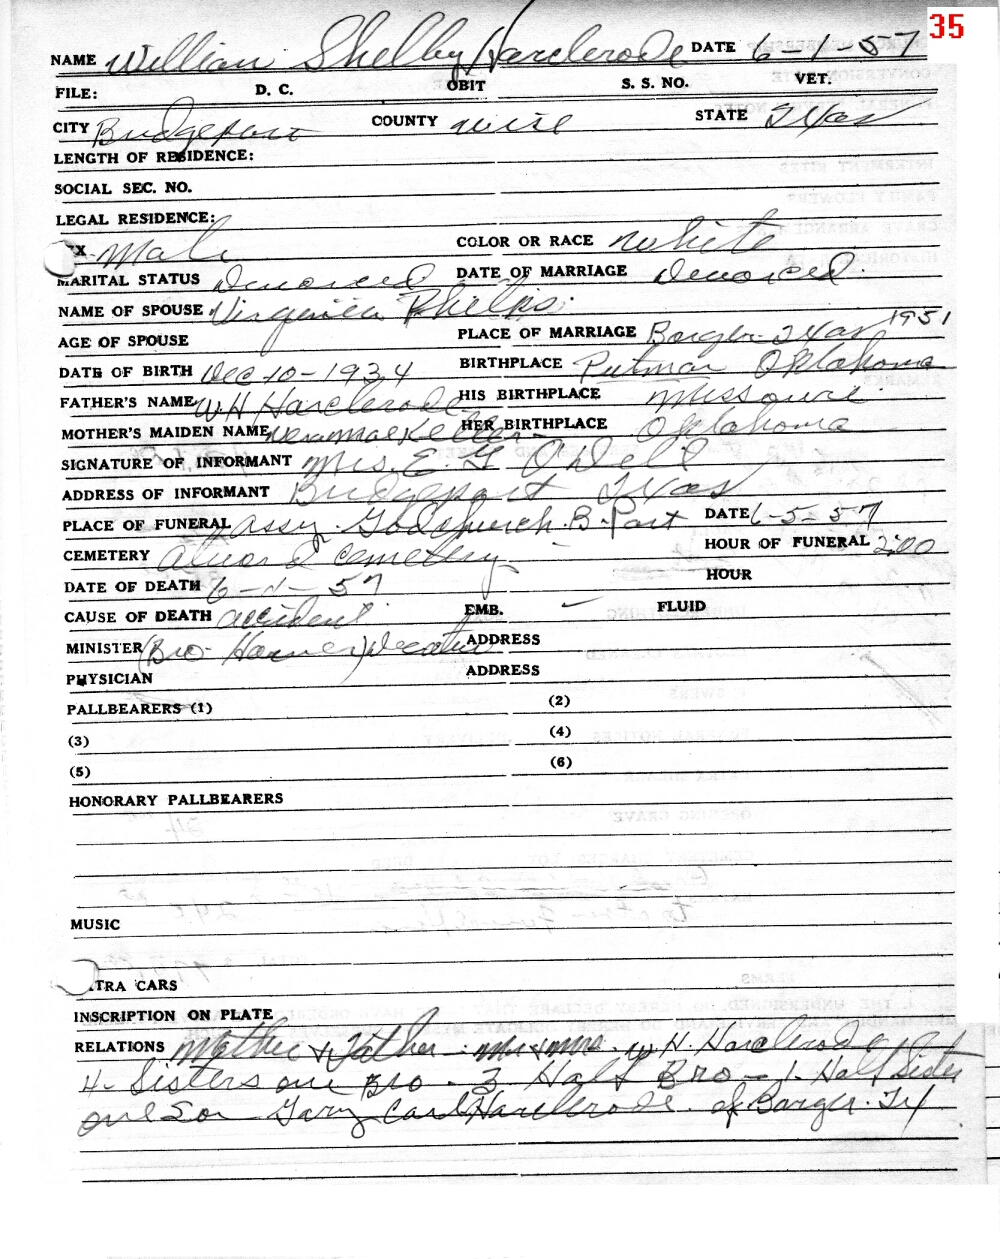 35
NAME William Shelby Harclerode DATE 6-1-57
FILE: D. C. OBIT S. S. NO. VET.
CITY Bridgeport COUNTY Wise STATE Texas
LENGTH OF RESIDENCE:
SOCIAL SEC. NO.
LEGAL RESIDENCE:
X Male COLOR OR RACE White
MARITAL STATUS Divorced DATE OF MARRIAGE Divorced
NAME OF SPOUSE Virginia Phelps
AGE OF SPOUSE PLACE OF MARRIAGE Borger Texas 1951
DATE OF BIRTH Dec 10-1934 BIRTHPLACE Putman Oklahoma
FATHER'S NAME W.H Harclerode HIS BIRTHPLACE Missouri
MOTHER'S MAIDEN NAME HER BIRTHPLACE Oklahoma
SIGNATURE OF INFORMANT Mrs. E. G O'Dell
ADDRESS OF INFORMANT Bridgeport Texas
PLACE OF FUNERAL Assy. God church B-Port DATE 6-5-57
CEMETERY Alvord Cemetery HOUR OF FUNERAL 2:00
DATE OF DEATH 6-1-57 HOUR
CAUSE OF DEATH accident EMB. FLUID
MINISTER (Bro ) Decatur ADDRESS
PHYSICIAN ADDRESS
PALLBEARERS (1) (2)
(3) (4)
(5) (6)
HONORARY PALLBEARERS
MUSIC
TRA CARS
INSCRIPTION ON PLATE
RELATIONS Mother & Father - Mr & Mrs. W.H. Harclerode B Port
4- Sisters one Bro - 3 Half Bro - 1. Half Sister
one Son Gary Carl Harclerode. of Borger. Tx